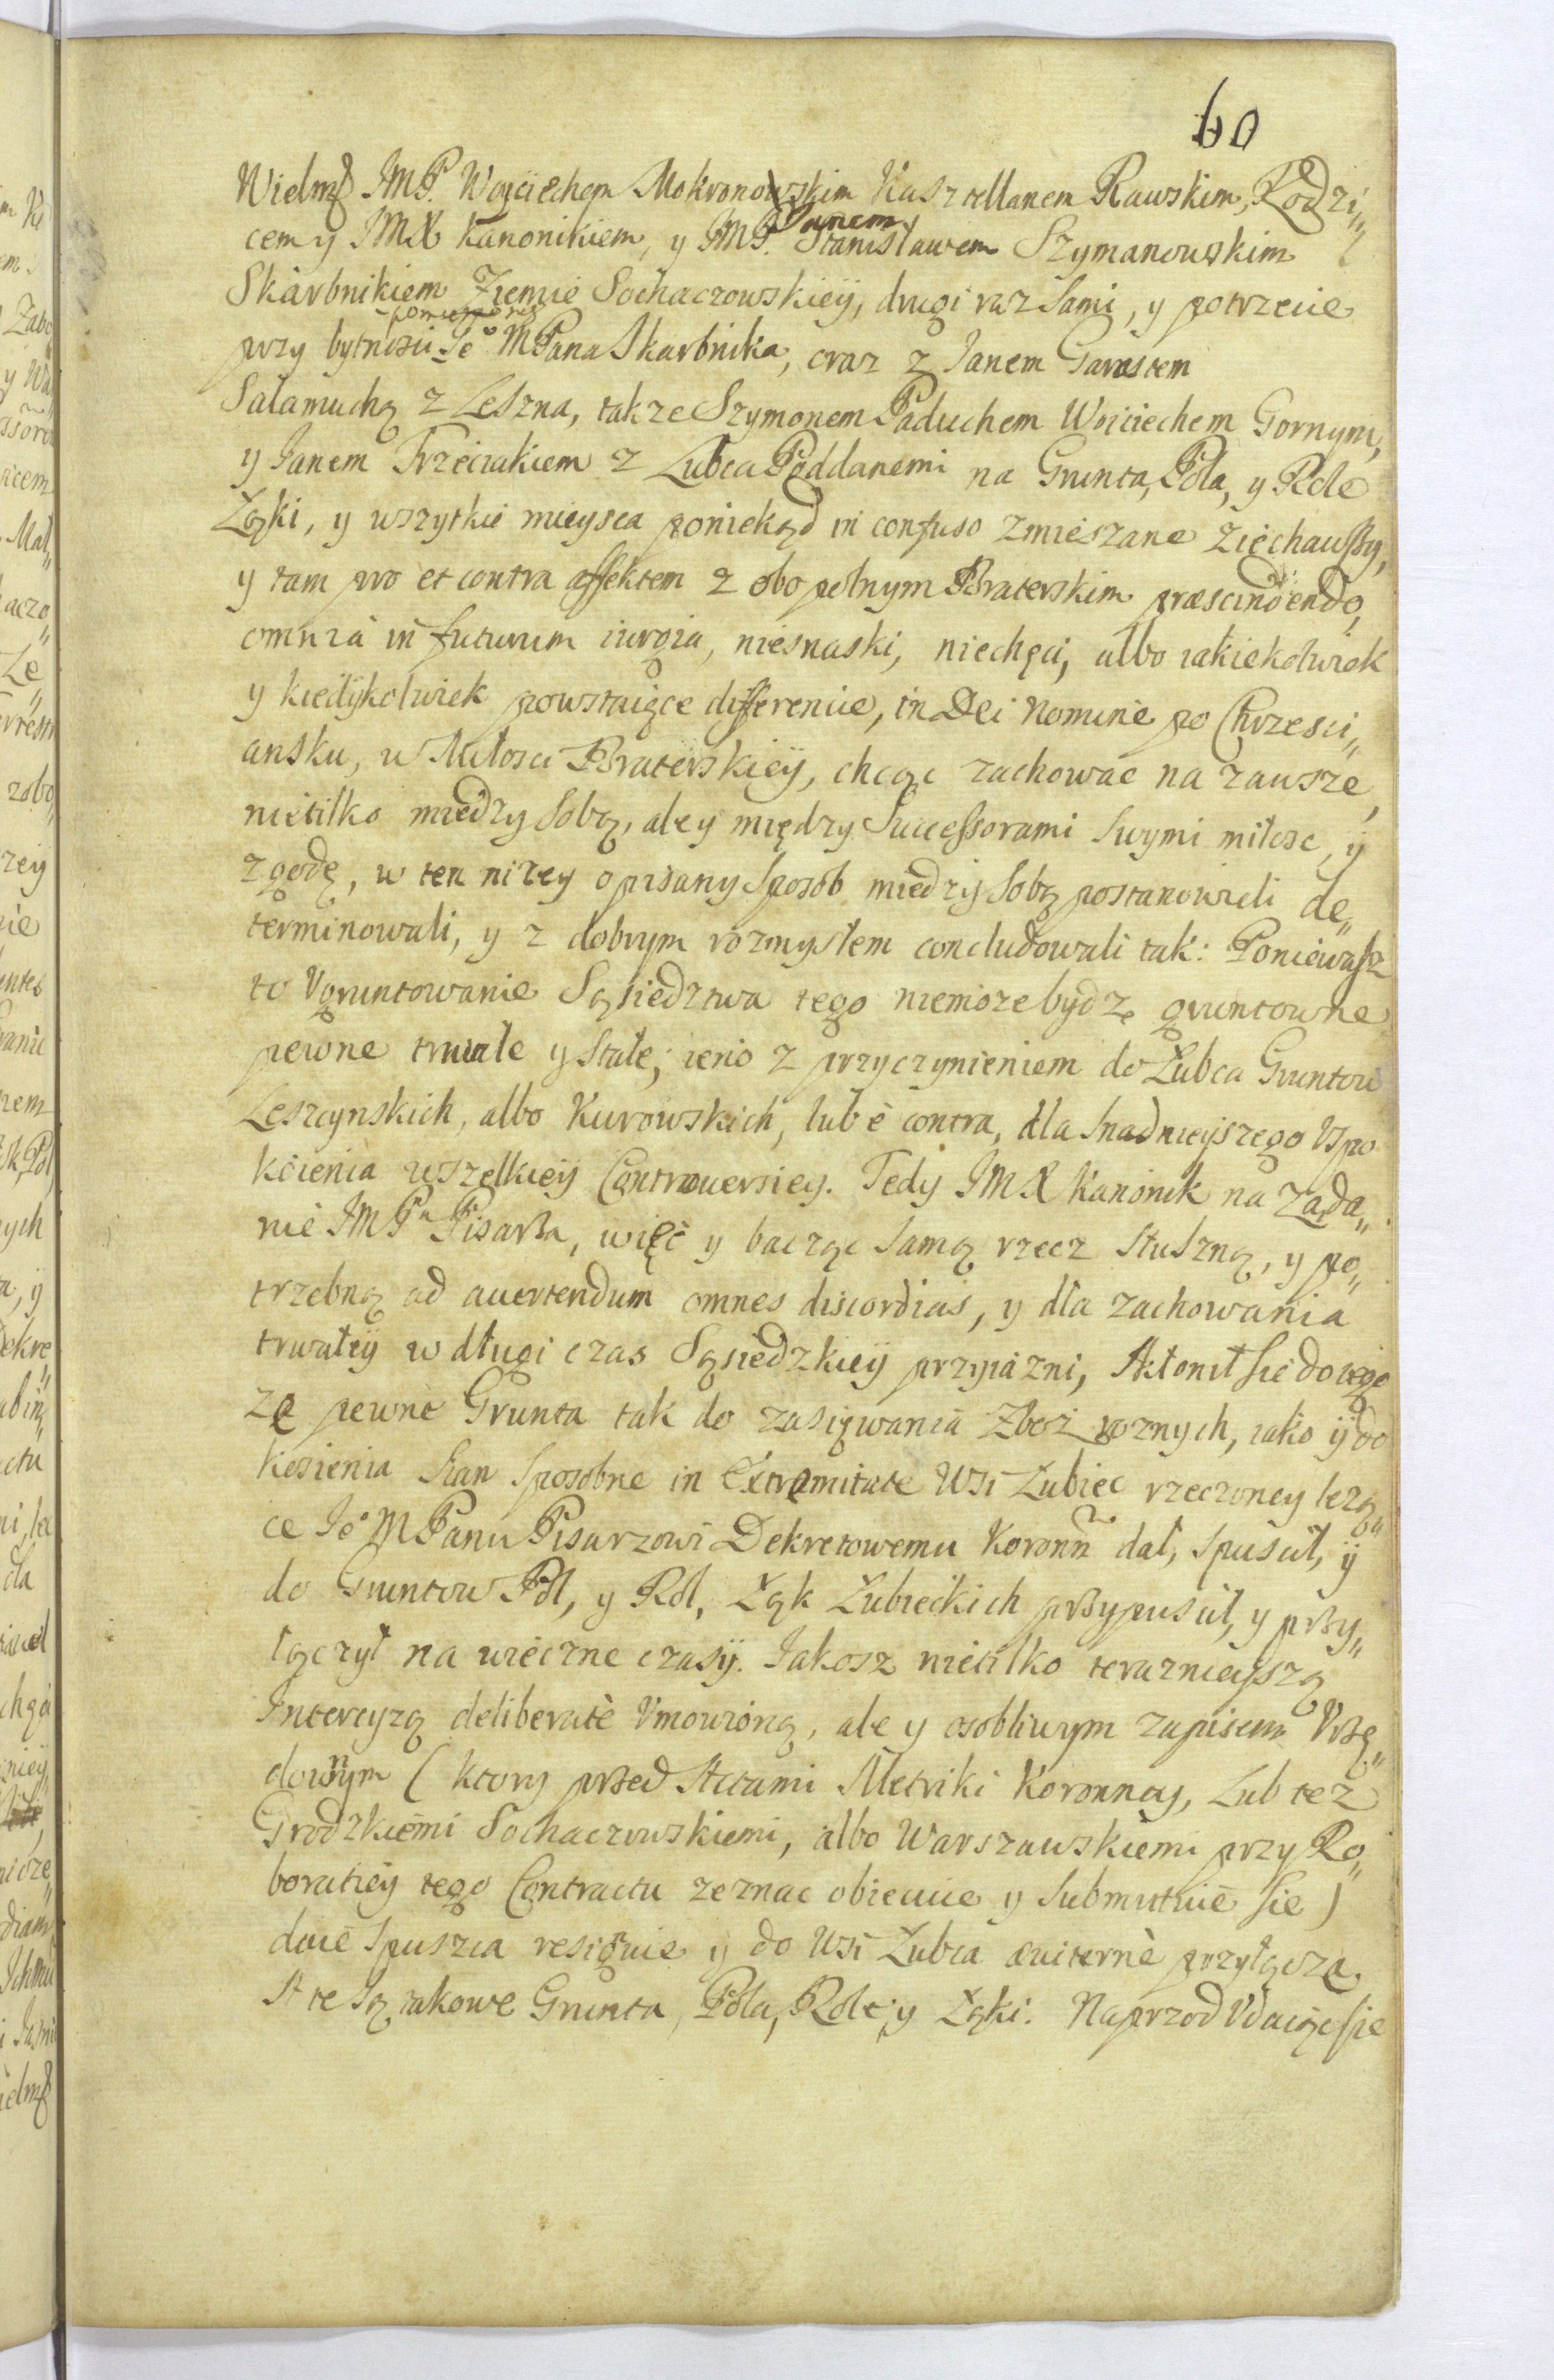 60
Wielmż JMP. Woyciechem Mokronowskim Kasztellanem Rawskim, Rodzi„
cem y JMX Kanonikiem, y JMP. Panem Stanisławem Szymanowskim
Skarbnikiem Ziemie Sochaczowskiey, drugi raz sami, y potrzecie
przy bytnosci pomienioneg Je° MPana Skarbnika, oraz z Janem Garustem
Salamuchą z Leszna, takze Szymonem Paduchem Woiciechem Gornym,
y Janem Trzeciakiem z Łubca Poddanemi na Grunta, Pola, y Role
Łąki, y wszytkie mieysca poniekąd in confuso zmieszane ziechawszy,
y tam pro et contra affektem z obopolnym Braterskim præscindendo,
omnia in futurum iurgia, niesnaski, niechęci, albo iakiekolwiek
y kiedykolwiek powstaiące differencie, in Dei Nomine po Chrzesci„
ansku, w Miłosci Braterskiey, chcąc zachować na zawsze,
nietilko miedzy sobą, ale y między Successorami swymi miłosc, y
zgodę, w ten nizey opisany sposob miedzy sobą postanowili de„
terminowali, y z dobrym rozmysłem concludowali tak: Poniewasz
to Vgruntowanie Sąsiedztwa tego niemoze bydz gruntowne
pewne trwałe y stałe; ieno z przyczynieniem do Łubca Gruntow
Leszczynskich, albo Kurowskich, lub è contra, dla snadnieyszego Vspo
koienia wszelkiey Controuersiey. Tedy JMX Kanonik na ząda„
nie JMPa Pisarza, więć y bacząc samą rzecz słuszną, y po„
trzebną ad auertendum omnes discordias, y dla zachowania
trwałey w długi czas Sąsiedzkiey przyiazni, skłonił sie do tego
ze pewne Grunta tak do zasiewania zboz roznych, iako y do
kosienia sian sposobne in Extremitate Wsi Łubiec rzeczoney lezą„
ce Je° MPanu Pisarzowi Dekretowemu Koronn dał, spuscił, y
do Gruntow Pol, y Rol, Łąk Łubieckich przypuscił, y przy„
łączył na wieczne czasy. Jakosz nietilko teraznieyszą
Intercyzą deliberatè Vmowioną, ale y osobliwym zapisem Vrzę„
downym (ktory przed Actami Metriki Koronney, Lub tez
Grodzkiemi Sochaczowskiemi, albo Warszawskiemi przy Ro„
boratiey tego Contractu zeznac obiecuie y submittuie sie)
daie spuszcza resignuie y do Wsi Łubca æuiternè przyłącza.
A te są takowe Grunta, Pola, Role, y Łąki. Naprzod Vdaiąc sie